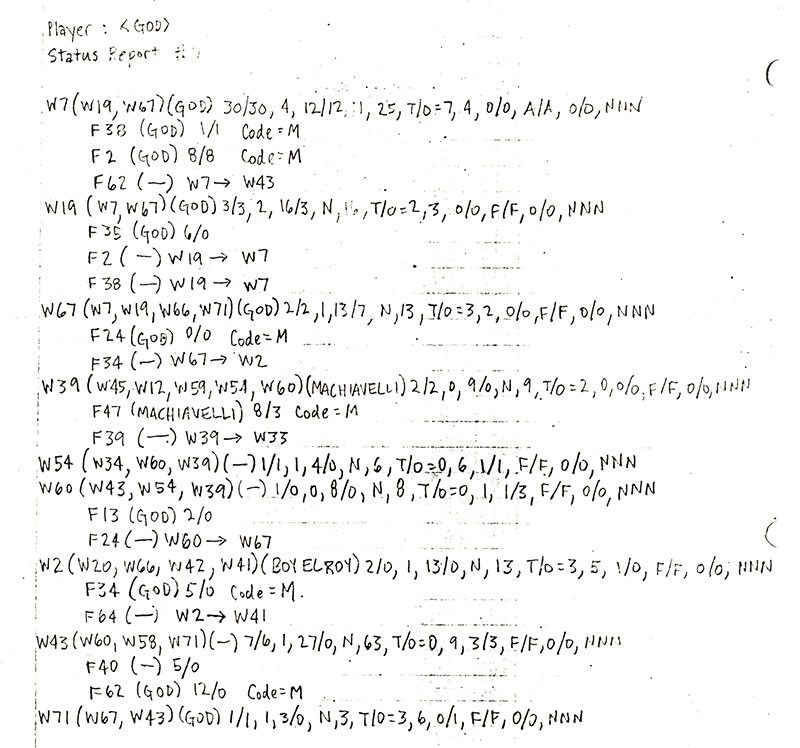 Player : <GOD>
Status Report #
W7 (W19, W67) (GOD) 30/30, 4, 12/12, 1, 25, T/O=7, 4, 0/0, A/A, 0/0, NNN
F38 (GOD) 1/1 Code=M
F2 (GOD) 8/8 Code=M
F62 (—) W7→ W43
W19 (W7, W67) (GOD) 3/3, 2, 16/3, N, T/O=2, 3, 0/0, F/F, 0/0, NNN
F35 (GOD) 6/0
F2 (—) W19→ W7
F38 (—) W19→ W7
W67 (W7, W19, W66, W71) (GOD) 2/2, 1, 13/7, N, 13, T/O=3, 2, 0/0, F/F, 0/0, NNN
F24 (GOD) 0/0 Code=M
F34 (—) W67→ W2
W39 (W45, W12, W59, W54, W60) (MACHIAVELLI) 2/2, 0, 9/0, N, 9, T/O=2, 0, 0/0, F/F, 0/0, NNN
F47 (MACHIAVELLI) 8/3 Code=M
F39 (—) W39→ W33
W54 (W34, W60, W39) (—) 1/1, 1, 4/0, N, 6, T/O=0, 6, 1/1, F/F, 0/0, NNN
W60 (W43, W54, W39) (—) 1/0, 0, 8/0, N, 8, T/O=0, 1, 1/3, F/F, 0/0, NNN
F13 (GOD) 2/0
F24 (—) W60→ W67
W2 (W20, W66, W42, W41) (BOY ELROY) 2/0, 1, 13/0, N, 13, T/O=3, 5, 1/0, F/F, 0/0, NNN
F34 (GOD) 5/0 Code=M.
F64 (—) W2→ W41
W43 (W60, W58, W71) (—) 7/6, 1, 27/0, N, 63, T/O=0, 9, 3/3, F/F, 0/0, NNN
F40 (—) 5/0
F62 (GOD) 12/0 Code=M
W71 (W67, W43) (GOD) 1/1, 1, 3/0, N, 3, T/O=3, 6, 0/1, F/F, 0/0, NNN